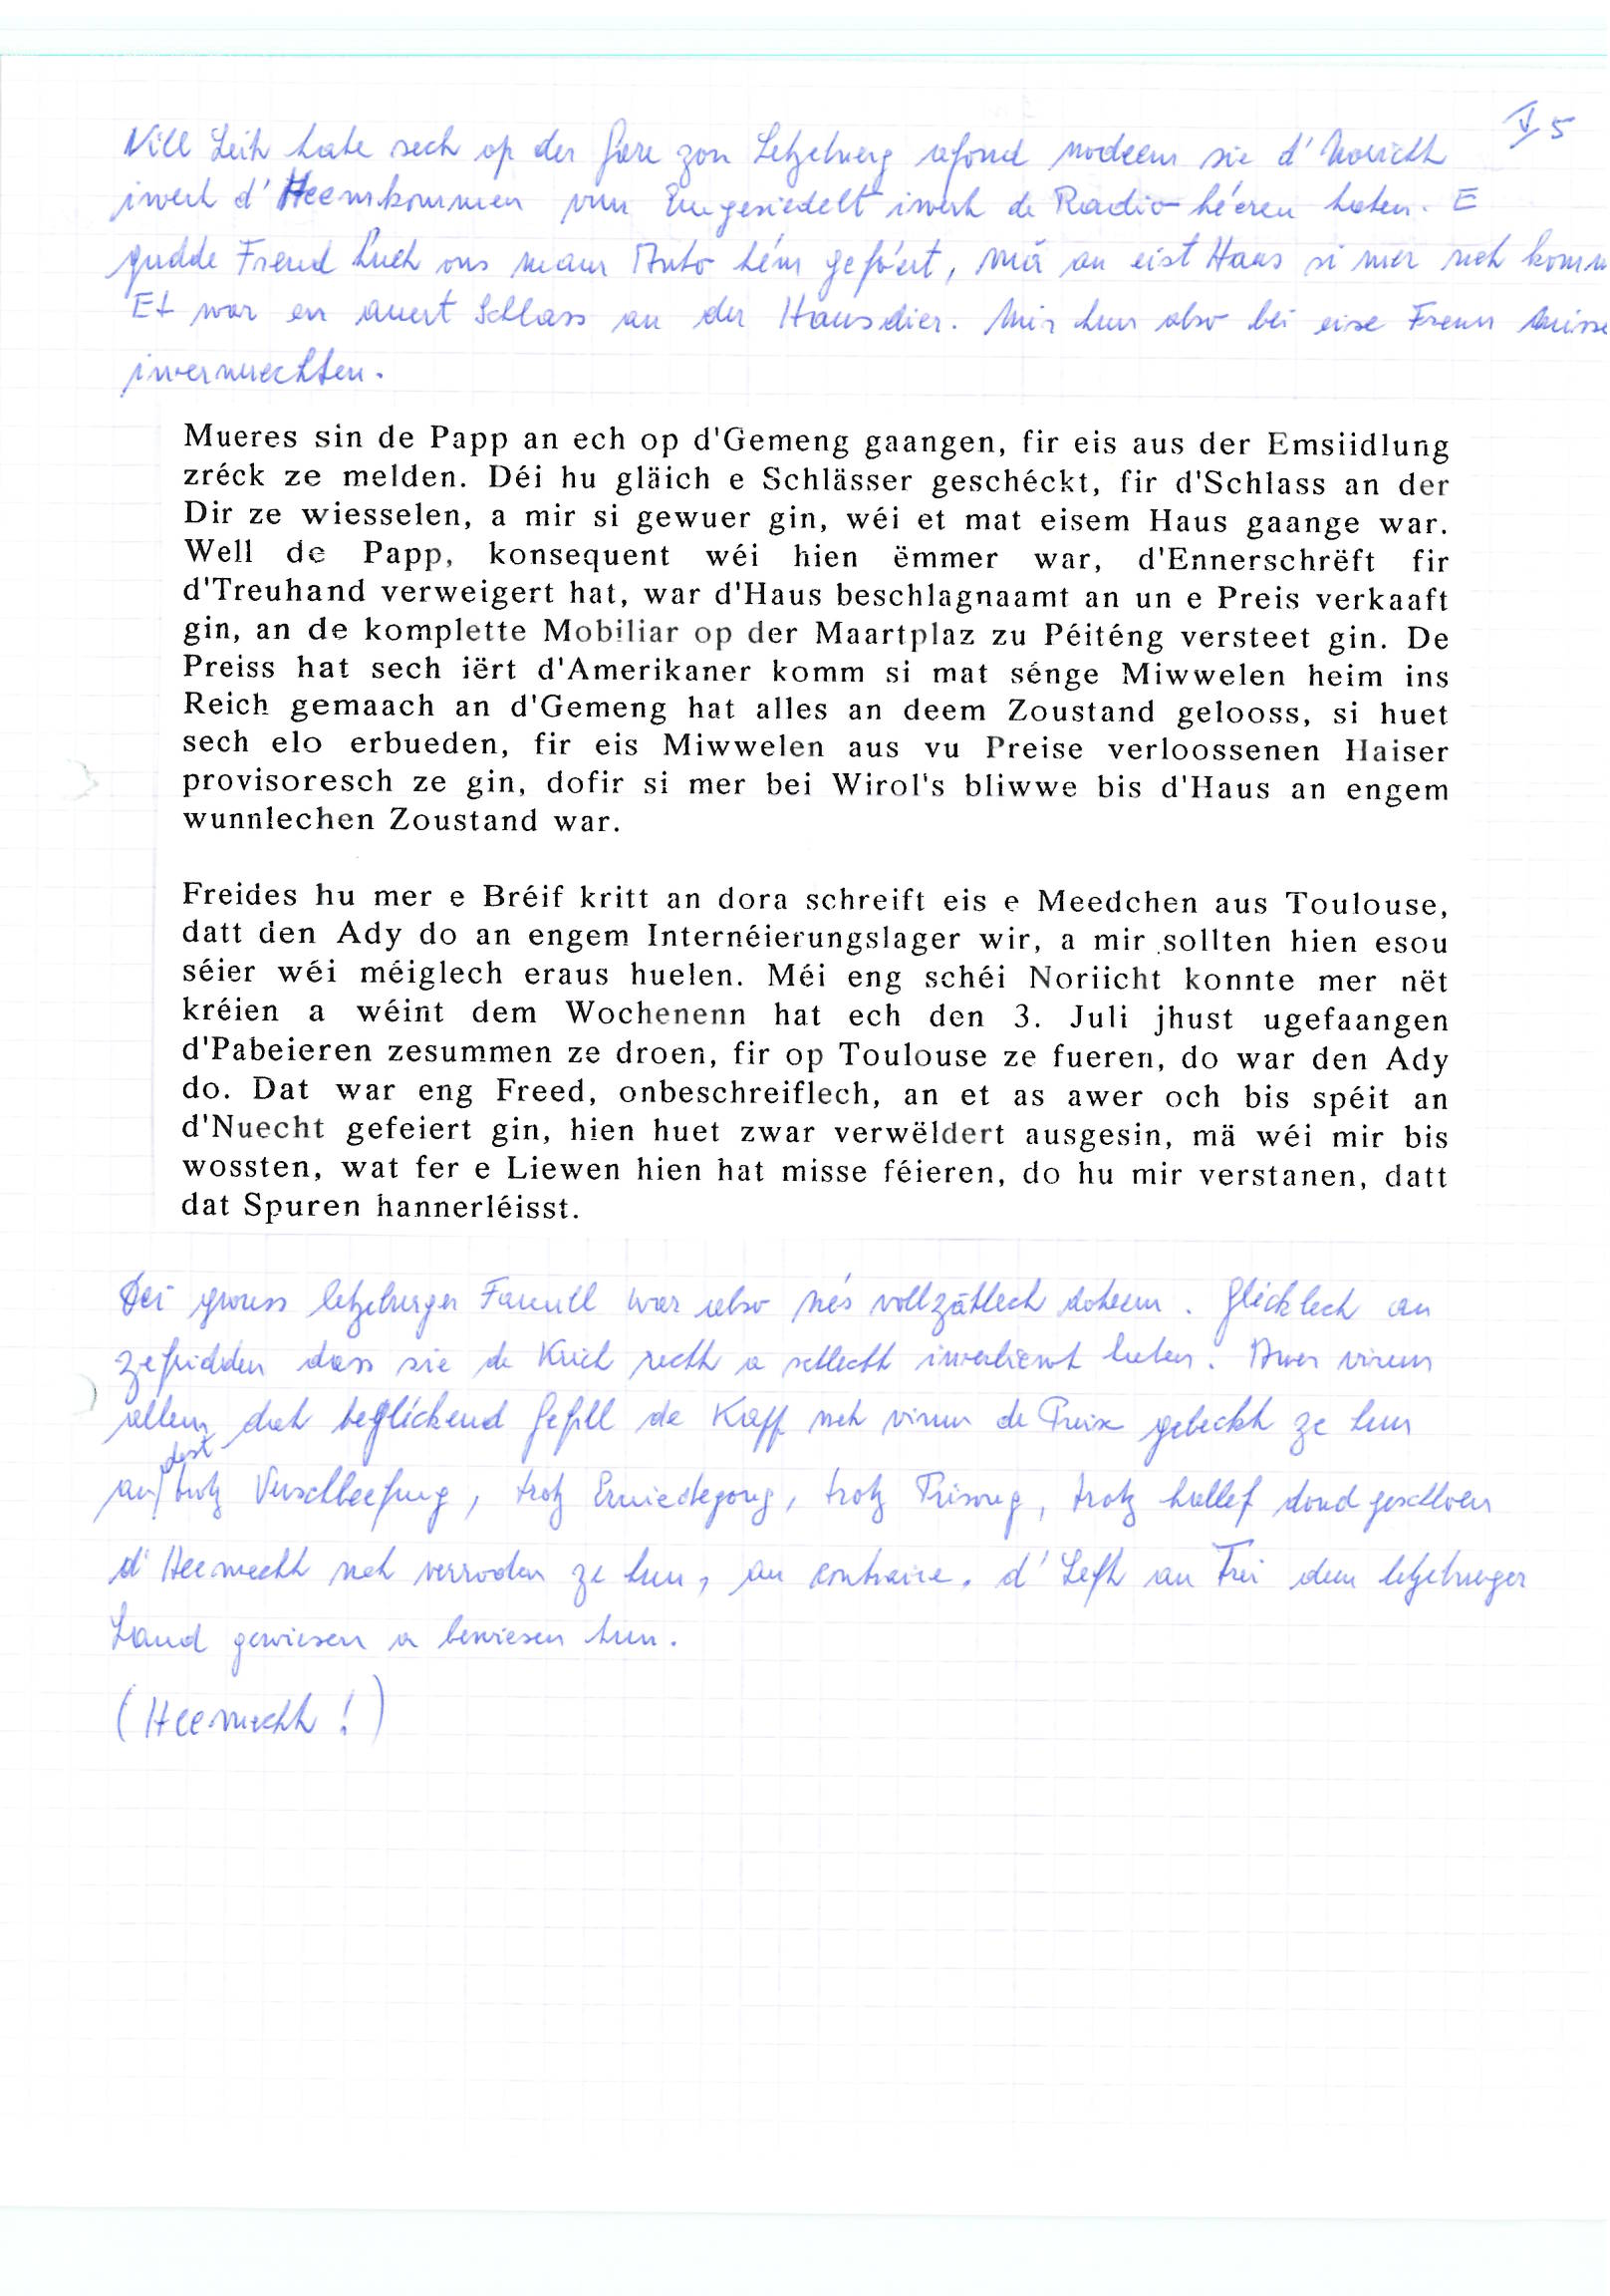 V 5
Vill Leit hate sech op der Gare zon Letzebuerg afond nodeem sie d'Noricht
iwert d'Heemkommen vun Emgesiedelt iwert de Radio héieren haten. E
gudde Frend huet ons mam Auto hém geféert, mä an eist Haus si mer net komm
Et war en anert Schlass an der Hausdier. Mir hun also bei eise Frenn misse
iwernuechten.
Mueres sin de Papp an ech op d'Gemeng gaangen, fir eis aus der Emsiidlung
zréck ze melden. Déi hu gläich e Schlässer geschéckt, fir d'Schlass an der
Dir ze wiesselen, a mir si gewuer gin, wéi et mat eisem Haus gaange war.
Well de Papp, konsequent wéi hien ëmmer war, d'Ennerschrëft fir
d'Treuhand verweigert hat, war d'Haus beschlagnaamt an un e Preis verkaaft
gin, an de komplette Mobiliar op der Maartplaz zu Péiténg versteet gin. De
Preiss hat sech iërt d'Amerikaner komm si mat sénge Miwwelen heim ins
Reich gemaach an d'Gemeng hat alles an deem Zoustand gelooss, si huet
sech elo erbueden, fir eis Miwwelen aus vu Preise verloossenen Haiser
provisoresch ze gin, dofir si mer bei Wirol's bliwwe bis d'Haus an engem
wunnlechen Zoustand war.
Freides hu mer e Bréif kritt an dora schreift eis e Meedchen aus Toulouse,
datt den Ady do an engem Internéierungslager wir, a mir sollten hien esou
séier wéi méiglech eraus huelen. Méi eng schéi Noriicht konnte mer nët
kréien a wéint dem Wochenenn hat ech den 3. Juli jhust ugefaangen
d'Pabeieren zesummen ze droen, fir op Toulouse ze fueren, do war den Ady
do. Dat war eng Freed, onbeschreiflech, an et as awer och bis spéit an
d'Nuecht gefeiert gin, hien huet zwar verwëldert ausgesin, mä wéi mir bis
wossten, wat fer e Liewen hien hat misse féieren, do hu mir verstanen, datt
dat Spuren hannerléisst.
Déi grouss letzeburger Famill war also nés vollzählech doheem. Glécklech an
zefridden dass sie de Krich recht a schlecht iwerliewt haten. Awer virum
allem dat beglückend Gefill de Kapp net virun de Preise gebeckt ze hun
an dest trotz Verschleefung, trotz Erniedregong, trotz Prisong, trotz hallef doud geschloen
d'Heemecht net verroden ze hun, au contraire. d'Left an Trei dem letzebuerger
Land gewiesen a bewiesen hun.
(Heemecht!)